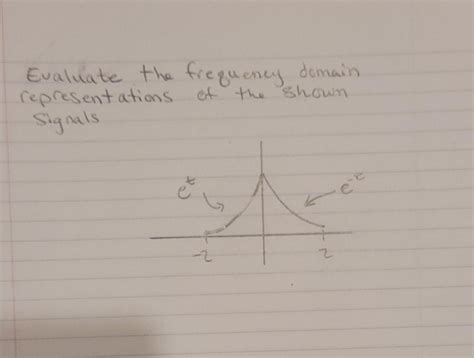 Evaluate the frequency domain
representations of the shown
Signals
e^t
e^-t
-2
2